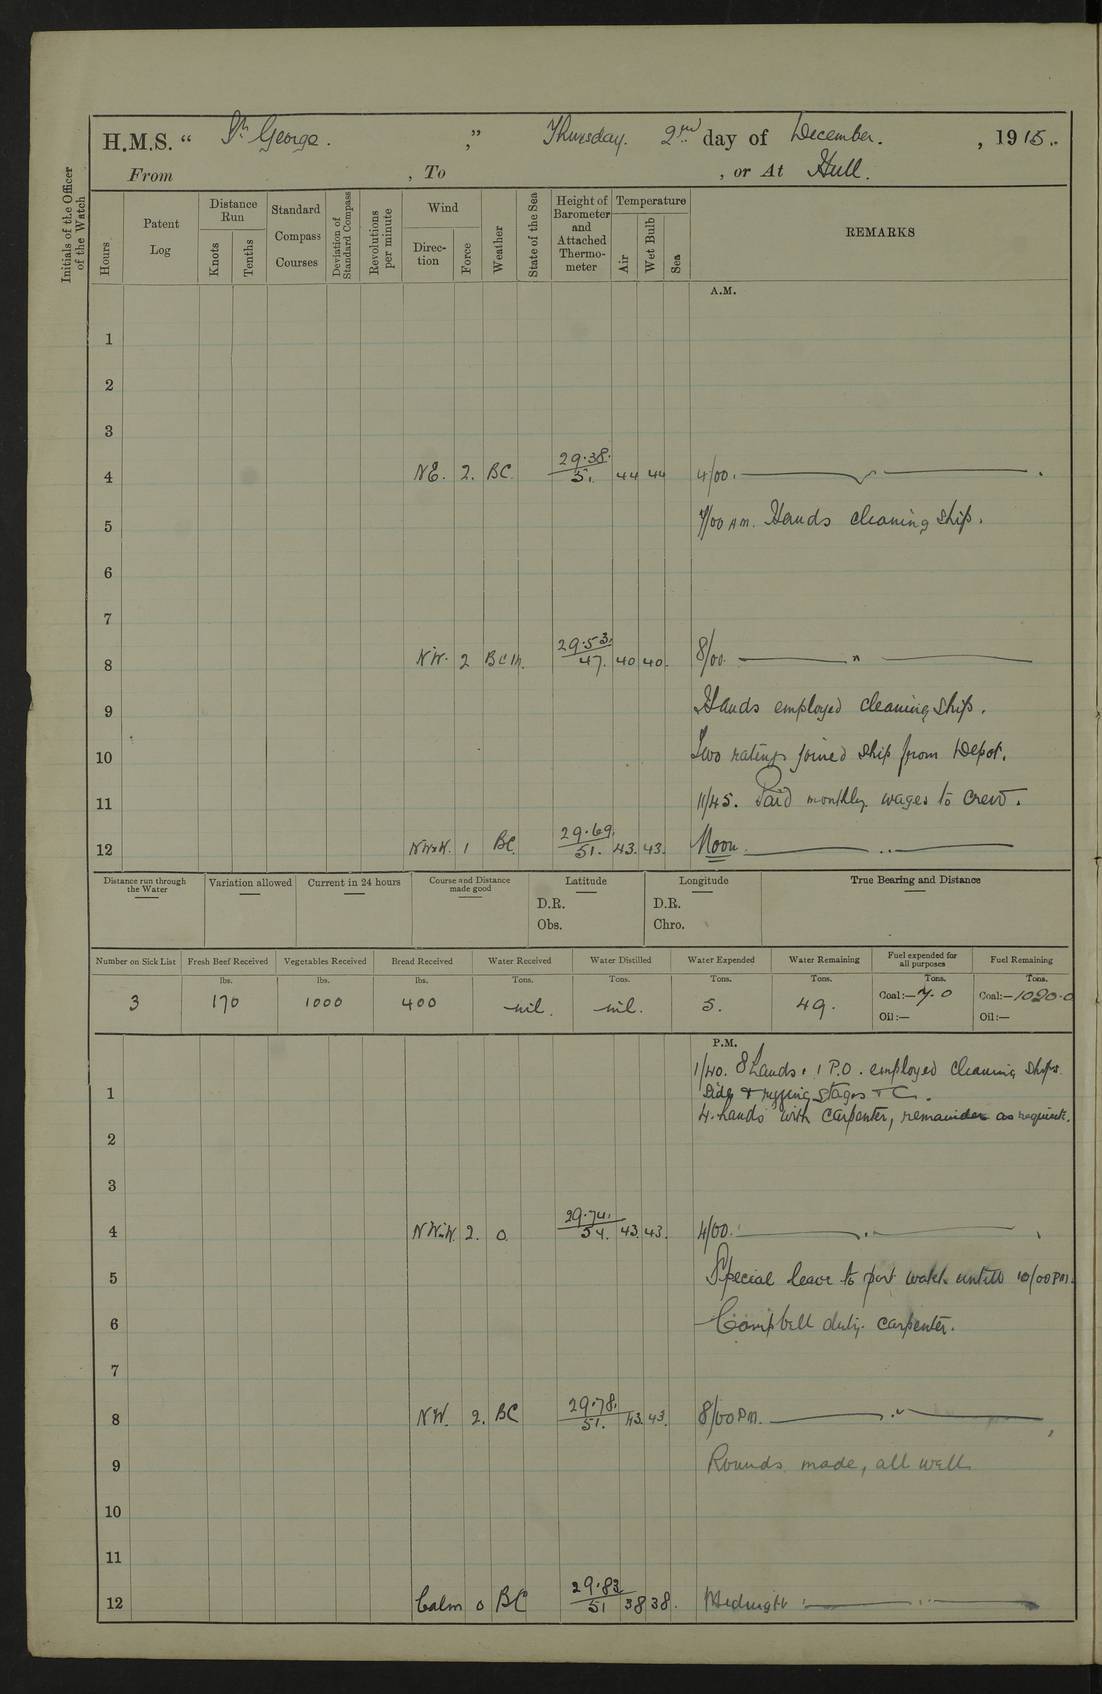 H.M.S. “ St George. ,” Thursday. 2nd day of December. , 1915.
From , To , or At Hull.
Initials of the Officer of the Watch
Hours
Patent Log
Distance Run
Knots
Tenths
Standard Compass Courses
Deviation of Standard Compass
Revolutions per minute
Wind
Direc-tion
Force
Weather
State of the Sea
Height of Barometer and Attached Thermo-meter
Temperature
Air
Wet Bulb
Sea
REMARKS
A.M.
1
2
3
4 NE. 2. BC. 29.38. 44 44 4/00.
5 7/00 AM. Hands cleaning ship.
6
7
8 NW. 2 BCM. 29.53. 47. 40 40. 8/00. "
9 Hands employed cleaning ship.
10 Two ratings joined ship from Depot.
11 11/45. Paid monthly wages to crew.
12 1 BC. 29.69. 51. 43. 43. Noon.
Distance run through the Water
Variation allowed
Current in 24 hours
Course and Distance made good
Latitude
D.R.
Obs.
Longitude
D.R.
Chro.
True Bearing and Distance
Number on Sick List
Fresh Beef Received
Vegetables Received
Bread Received
Water Received
Water Distilled
Water Expended
Water Remaining
Fuel expended for all purposes
Fuel Remaining
lbs. lbs. lbs. Tons. Tons. Tons. Tons. Tons. Tons.
3 170 1000 400 nil. nil. 5. 49. Coal:—7.0 Coal:—1020.0
Oil:— Oil:—
P.M.
1/40. 8 hands. 1 P.O. employed cleaning ships
1 side & rigging stages &C.
4 hands with carpenter, remainder as requisite.
2
3
4 2. O 29.74. 54. 43. 43. 4/00.
5 Special leave to port watch untill 10/00 PM.
6 Campbell duty carpenter.
7
8 NW. 2. BC 29.78. 51. 43. 43. 8/00 PM. "
9 Rounds made, all well
10
11
12 Calm 0 BC 29.83 51 38 38. Midnight